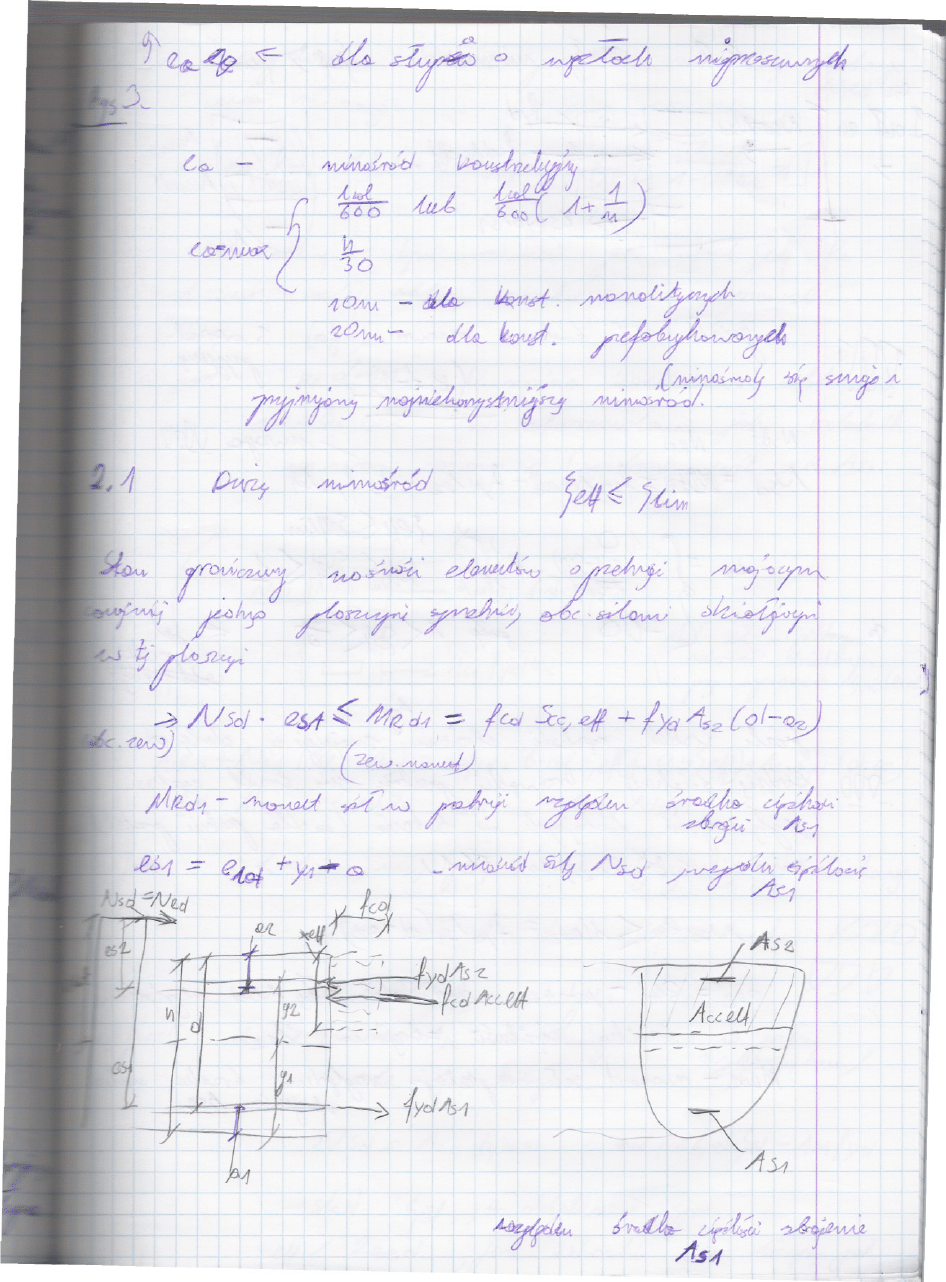 ea ← dla słupów o węzłach nieprzesuwnych
rys 3.
ea - mimośród konstrukcyjny
lcol/600 lub lcol/600 (1+1/n)
ea=max
h/30
10m - dla konst. monolitycznych
20m - dla konst. prefabrykowanych
przyjmujemy najniekorzystniejszy mimośród.
2.1 Duży mimośród ξeff ≤ ξlim
Stan graniczny nośności elementów o przekroju mającym
jedną płaszczyznę symetrii, obc. siłami działającymi
w tej płaszczyźnie
⇒ NSd · es1 ≤ MRd1 = fcd Scc,eff + fyd As2 (d-a2)
(zew. moment)
MRd1 - moment sił w przekroju względem środka ciężkości
zbrojenia As1
es1 = etot + y1 - a - mimośród siły NSd względem ciężkości
As1
NSd = NEd
a2 xeff fcd
As2
es2
fyd As2
fcd Acceff
Acceff
h d y2
es1
y1
fyd As1
a1
As1
względem środka ciężkości zbrojenia
As1